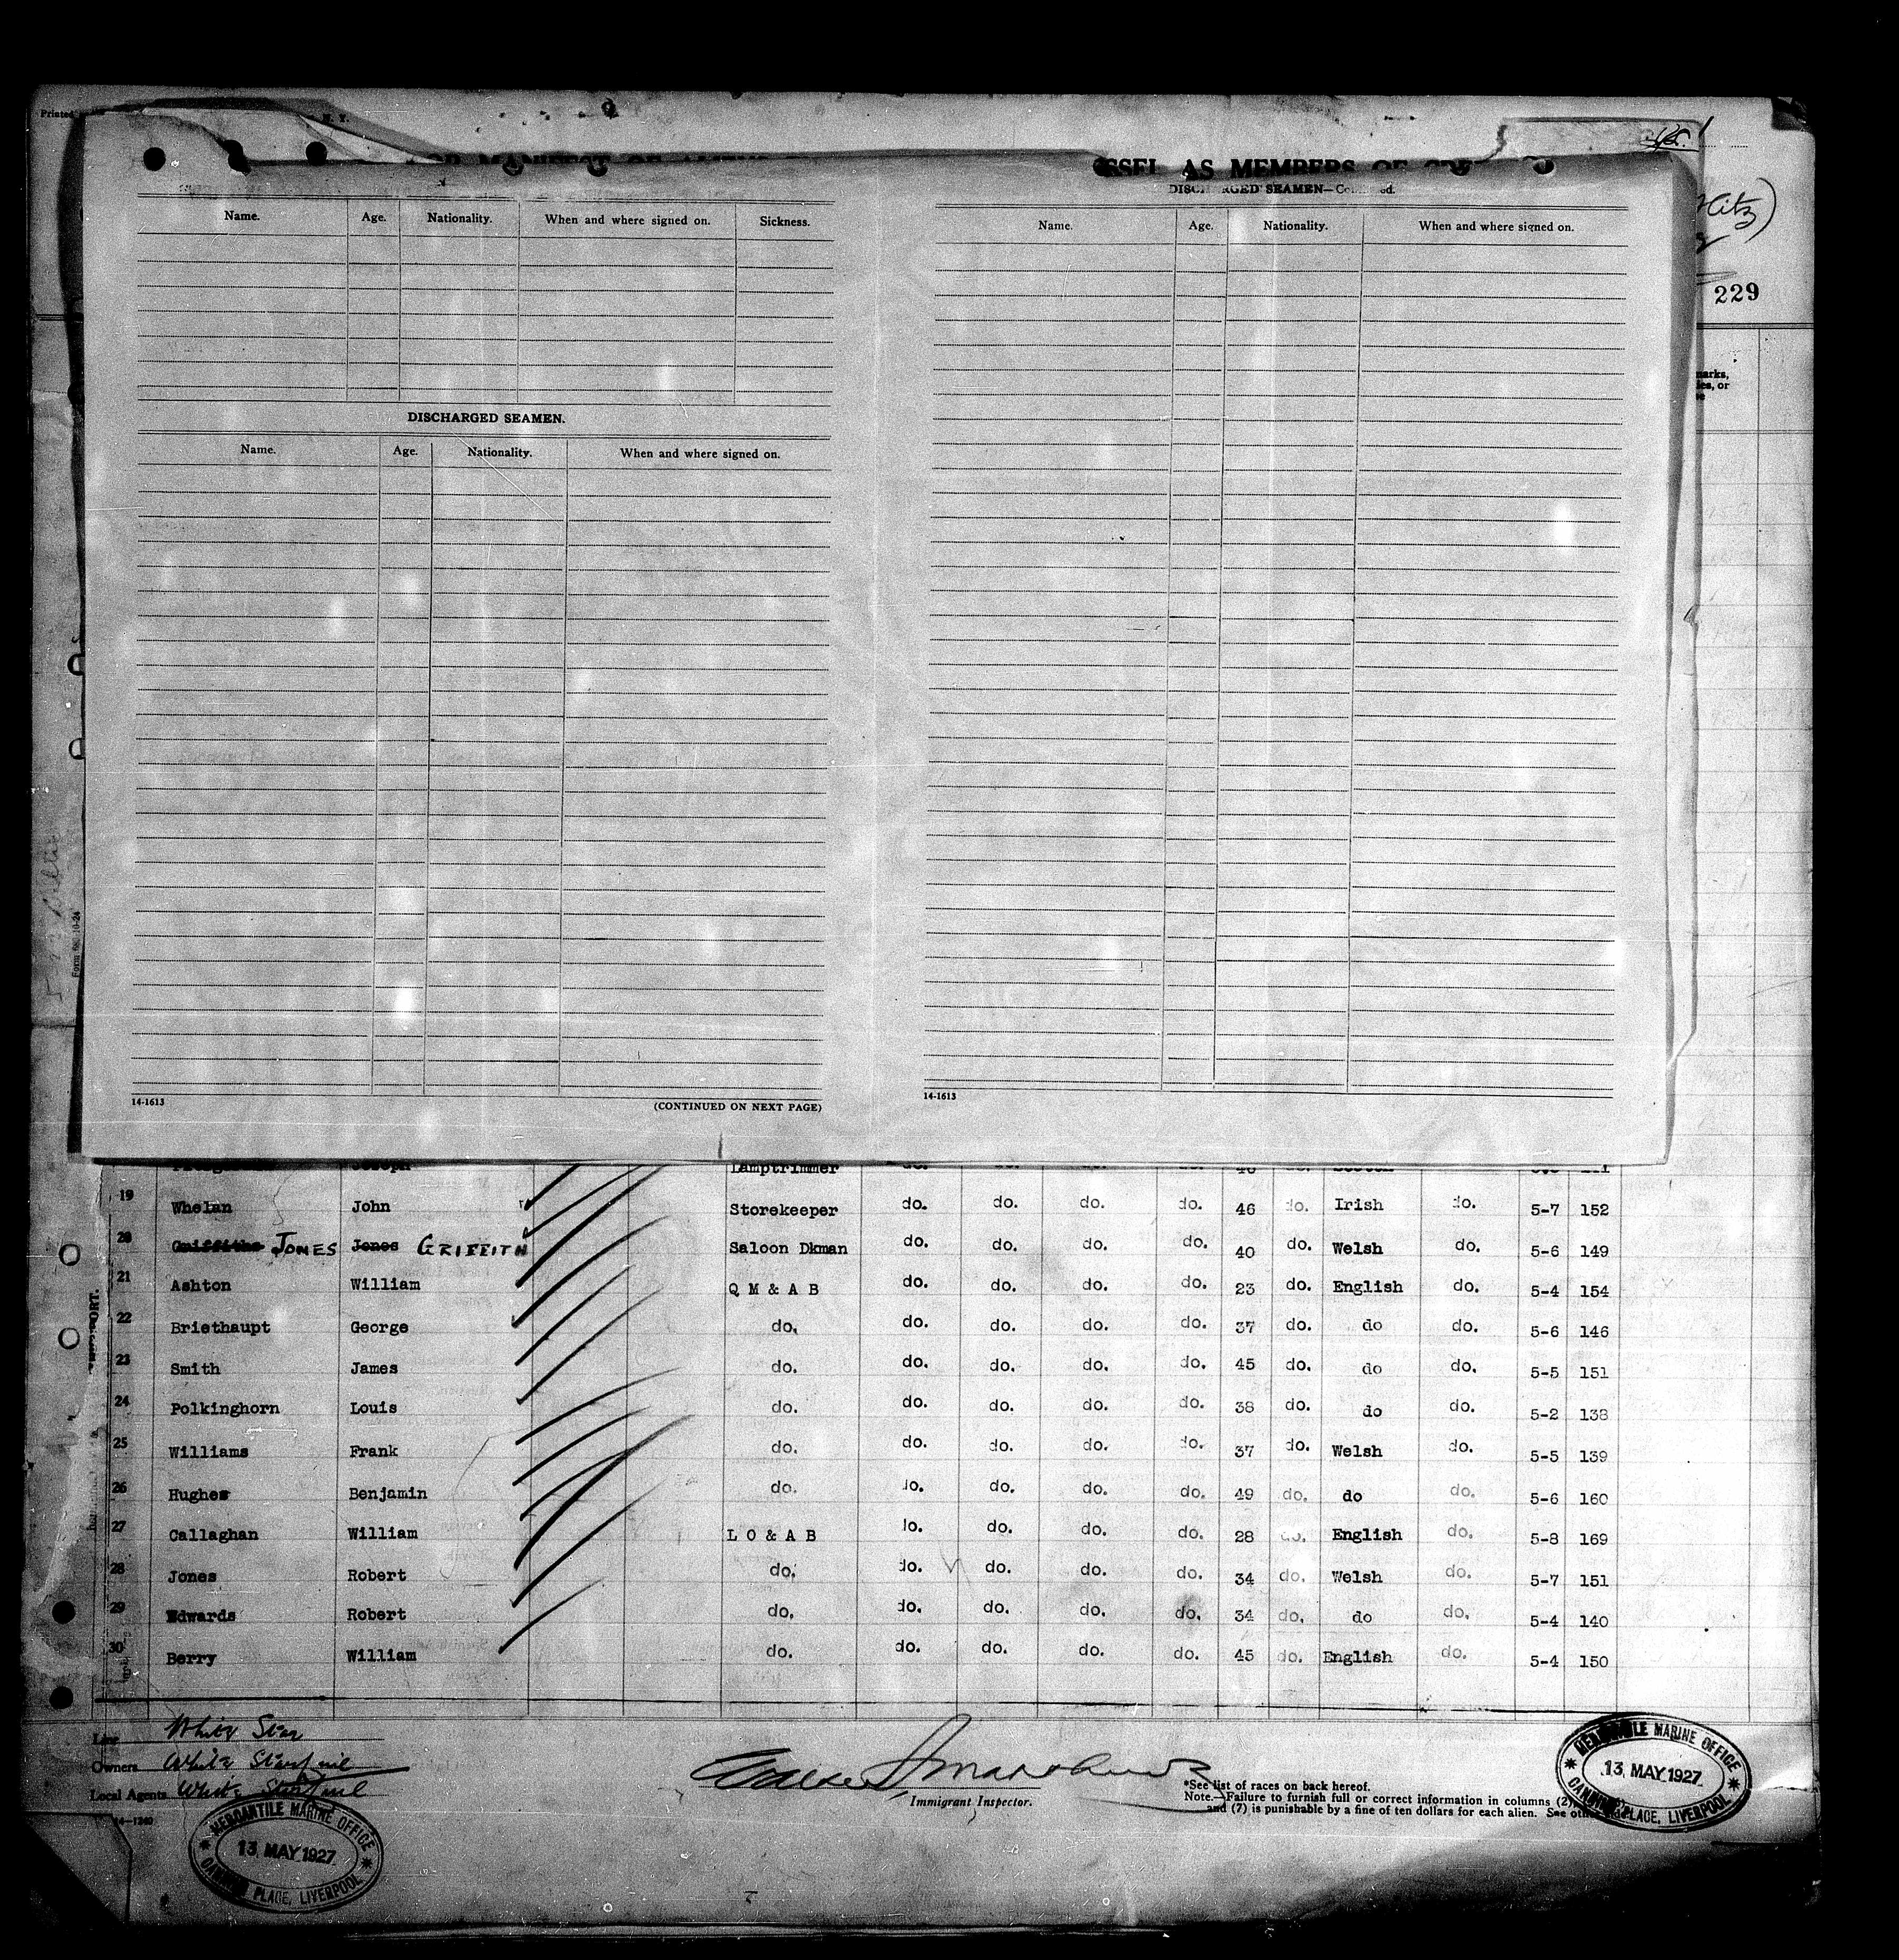 Printed
N. Y.
229
DISCHARGED SEAMEN—
Name. Age. Nationality. When and where signed on. Sickness.
Name. Age. Nationality. When and where signed on.
DISCHARGED SEAMEN.
Name. Age. Nationality. When and where signed on.
14-1613 (CONTINUED ON NEXT PAGE) 14-1613
Joseph Lamptrimmer
19 Whelan John Storekeeper do. do. do. do. 46 do. Irish do. 5-7 152
20 Griffiths JONES Jones GRIFFITH Saloon Dkman do. do. do. do. 40 do. Welsh do. 5-6 149
21 Ashton William Q M & A B do. do. do. do. 23 do. English do. 5-4 154
22 Briethaupt George do. do. do. do. do. 37 do. do do. 5-6 146
23 Smith James do. do. do. do. do. 45 do. do do. 5-5 151
24 Polkinghorn Louis do. do. do. do. do. 38 do. do do. 5-2 138
25 Williams Frank do. do. do. do. do. 37 do. Welsh do. 5-5 139
26 Hughes Benjamin do. do. do. do. do. 49 do. do do. 5-6 160
27 Callaghan William L O & A B do. do. do. do. 28 do. English do. 5-8 169
28 Jones Robert do. do. do. do. do. 34 do. Welsh do. 5-7 151
29 Edwards Robert do. do. do. do. do. 34 do. do do. 5-4 140
30 Berry William do. do. do. do. do. 45 do. English do. 5-4 150
Line White Star
Owners White Star Line
Local Agents White Star Line
Immigrant Inspector.
*See list of races on back hereof.
Note.—Failure to furnish full or correct information in columns (2),
and (7) is punishable by a fine of ten dollars for each alien. See other side
MERCANTILE MARINE OFFICE
13 MAY 1927
CANNING PLACE, LIVERPOOL
MERCANTILE MARINE OFFICE
13 MAY 1927
CANNING PLACE, LIVERPOOL